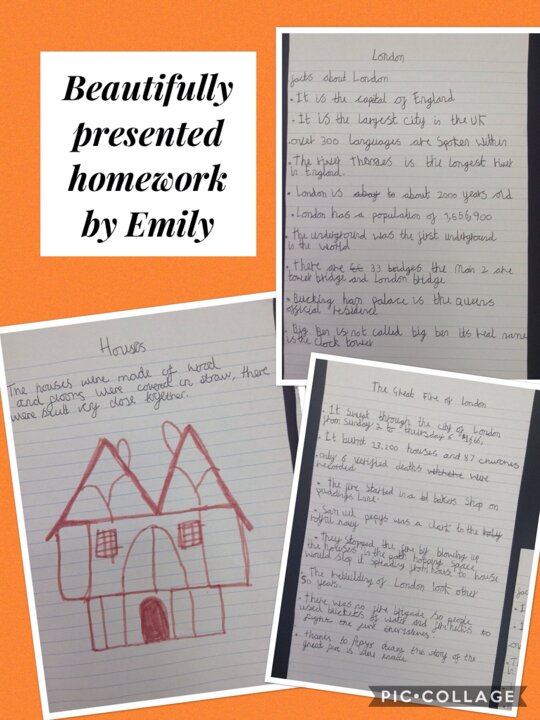 Beautifully
presented
homework
by Emily
London
facts about London
• It is the capital of England
• It is the largest city in the UK
• over 300 languages are spoken within
• The river Themes is the longest river
in England.
• London is about 2000 years old
• London has a population of
• the underground was the first underground
in the world
• There are 33 bridges the main 2 are
tower bridge and London bridge
• Bucking ham palace is the queens
official residence
• Big ben is not called big ben its real name
is the clock tower
Houses
The houses were made of wood
and floors were covered in straw, there
were built very close together.
The Great Fire of London
• It swept through the city of London
from Sunday 2 to thursday 6
• It burnt 23,200 houses and 87 churches
only 6 verified deaths were
recorded
• The fire started in a bakers shop on
Lane
• pepys was a clerk to the
royal navy
• They stopped the fire by blowing up
the houses in the path hoping space
would stop it spreading from house to house
• The rebuilding of London took other
50 years.
• there was no fire brigade so people
used buckets of water and to
fight the fire themselves
• thanks to pepys diary the story of the
great fire is
PIC•COLLAGE